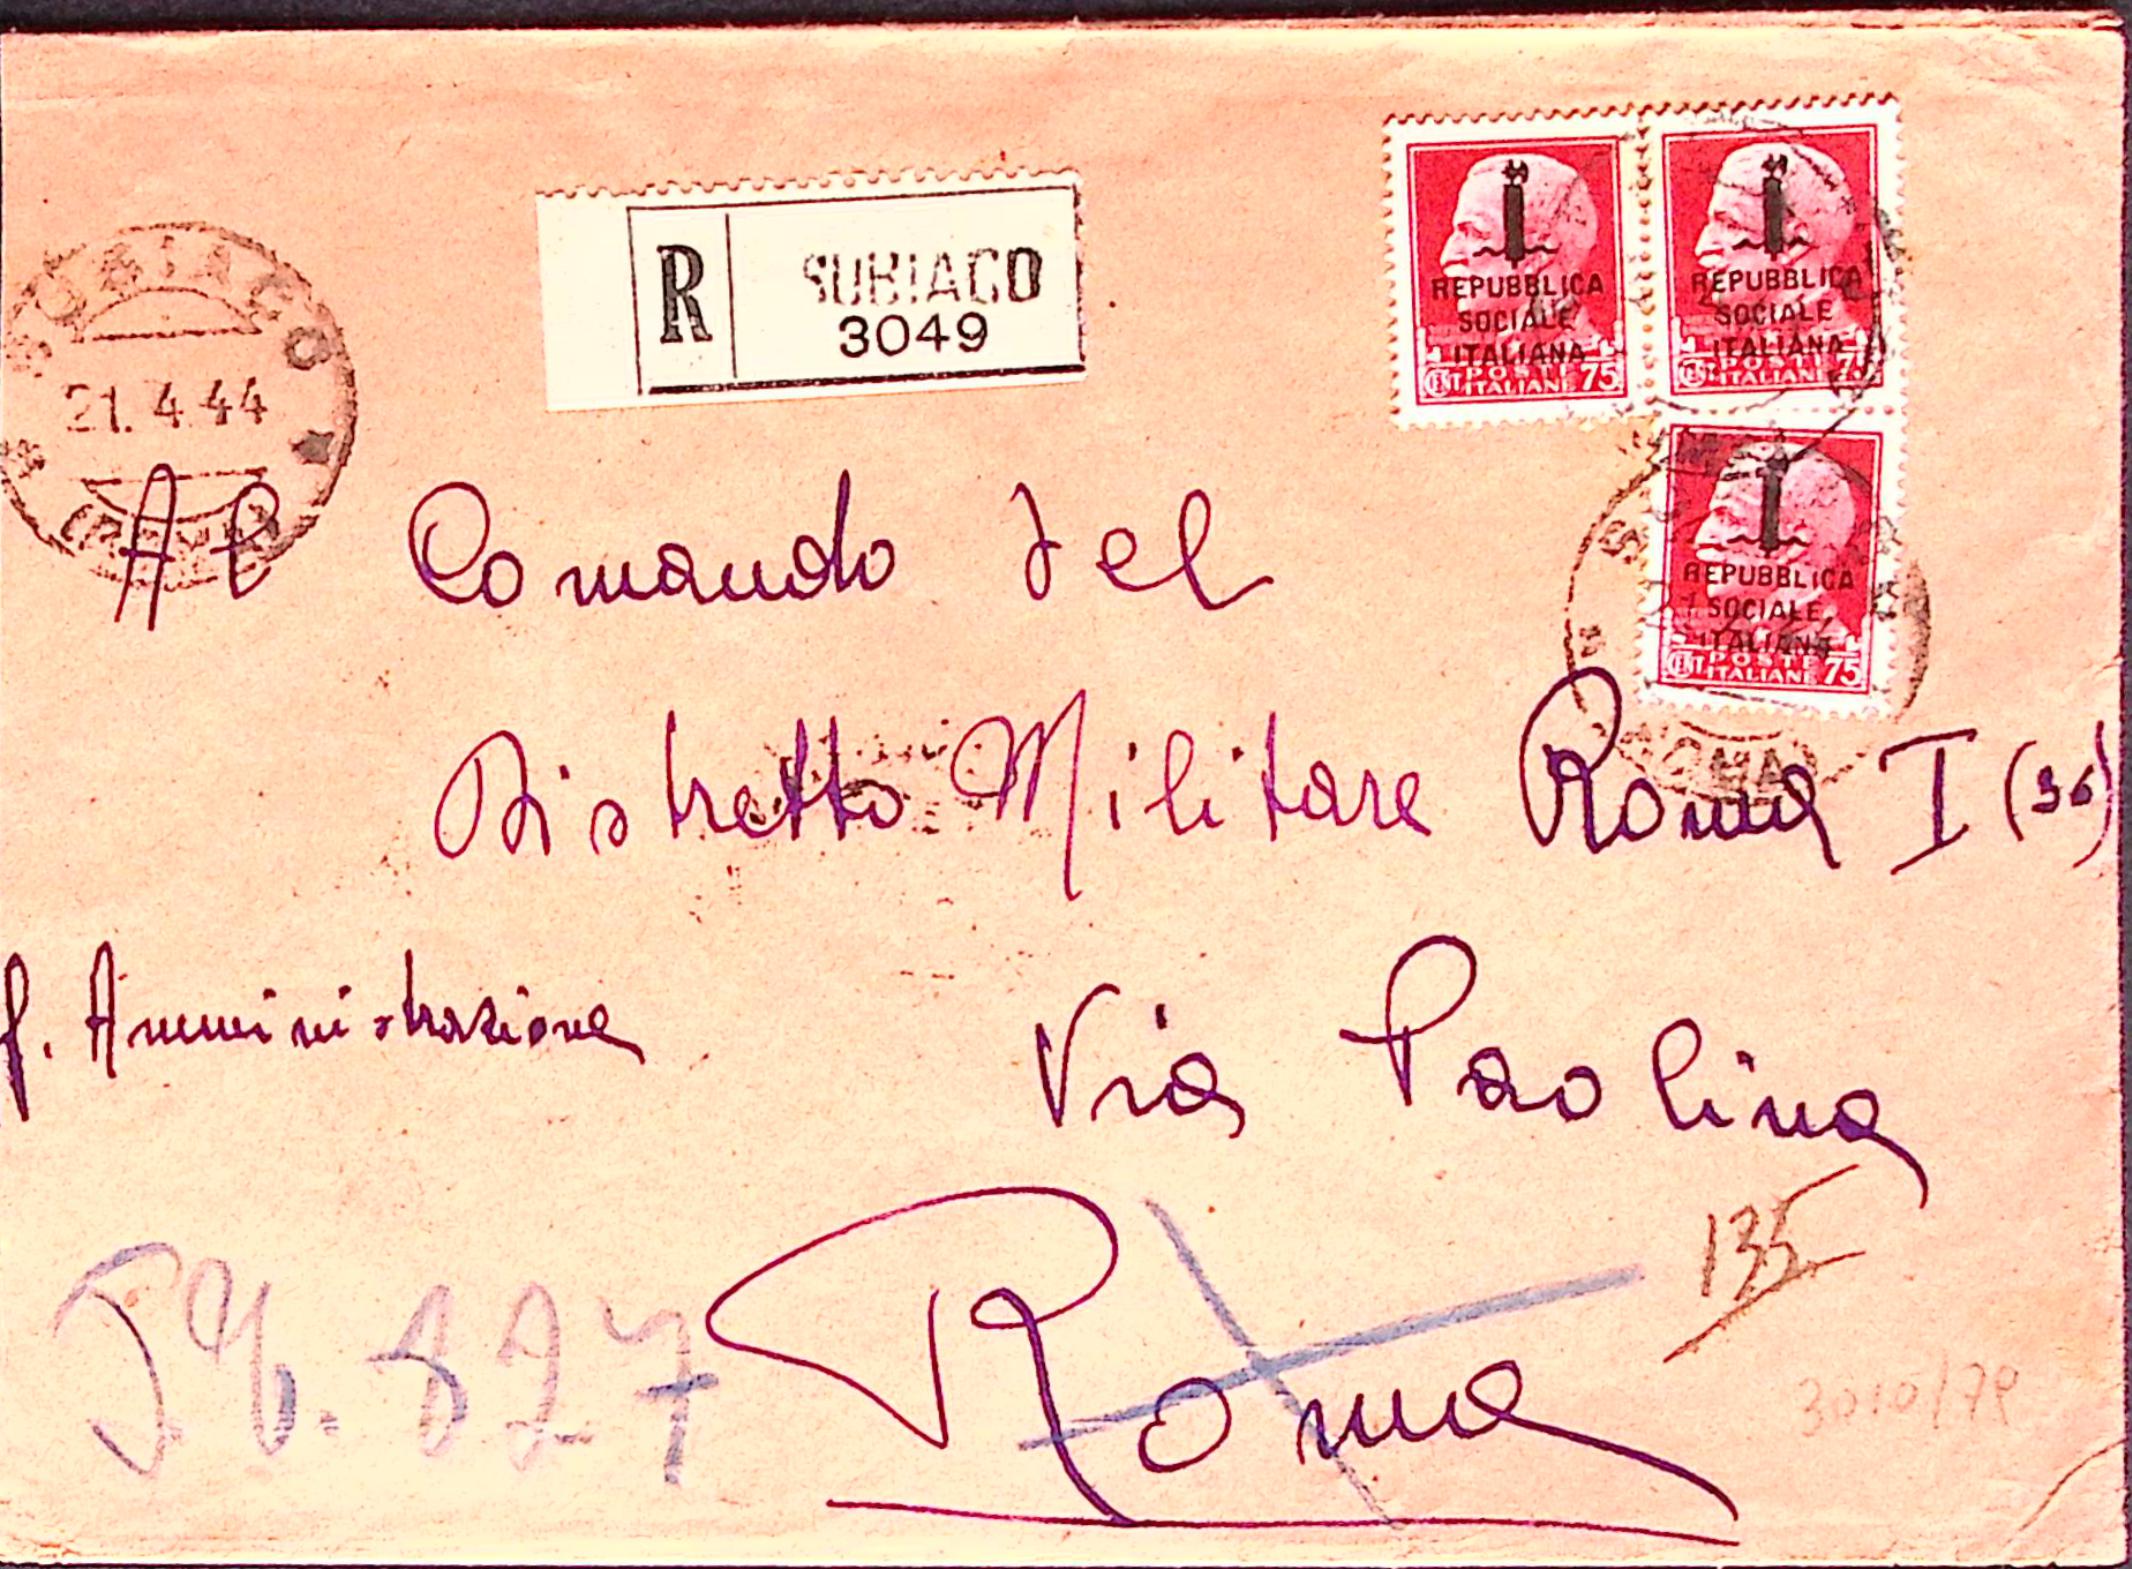 SUBIACO
21.4.44
(ROMA)
R SUBIACO
3049
REPUBBLICA
SOCIALE
ITALIANA
CENT POSTE
ITALIANE 75
REPUBBLICA
SOCIALE
ITALIANA
CENT POSTE
ITALIANE 75
REPUBBLICA
SOCIALE
ITALIANA
CENT POSTE
ITALIANE 75
(ROMA)
Al Comando del
Distretto Militare Roma I (36)
f. Amministrazione
Via Paolina
Roma
827
135
3010/79